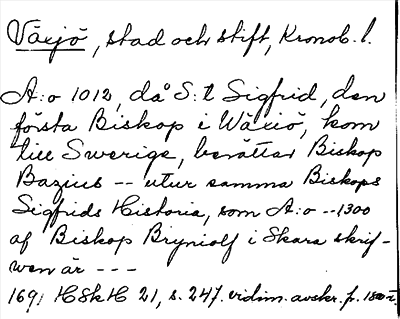 Växjö, stad och stift, Kronob. l.
A:o 1012, då S:t Sigfrid, den
första Biskop i Wäxiö, kom
till Swerige, berättar Biskop
Bazius -- utur samma Biskops
Sigfrids Historia, som A:o --1300
af Biskop Bryniolf i Skara skrif-
wen är ---
1691 HSkH 21, s. 247. vidim. avskr. p.